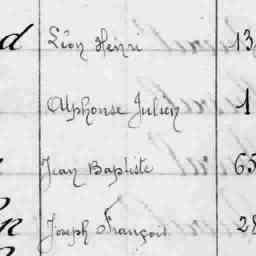 d Léon Henri 13
Alphonse Julien 1
Jean Baptiste 65
Joseph François 28